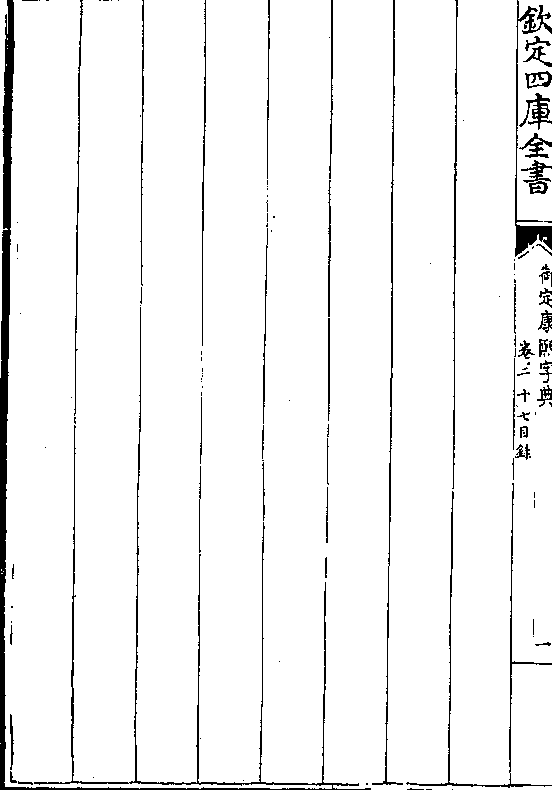 欽定四庫全書
御定康熙字典
卷三十七目錄
一